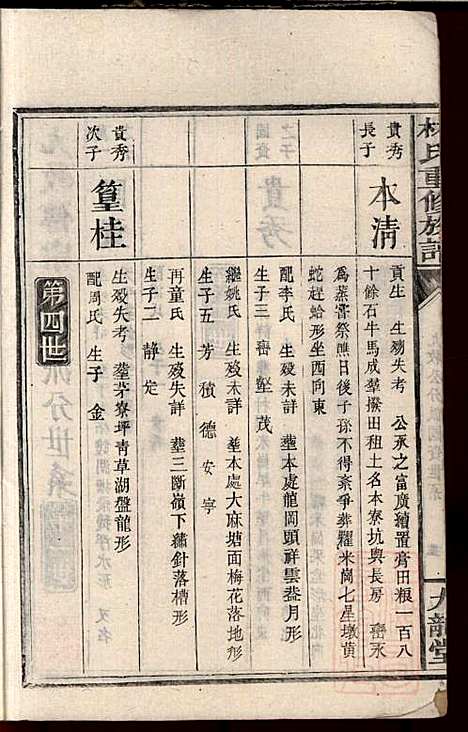 林氏重修族譜
九龍堂
貴秀
長子
本清
貢生 生殁失考 公承之富廣續置膏田粮一百八
十餘石牛馬成羣撥田租土名本寮坑與長房 崙永
為蒸嘗祭醮日後子孫不得紊爭葬糶米崗七星墩黄
蛇趕蛤形坐西向東
配李氏 生殁未詳 塟本處龍岡頭祥雲盖月形
生子三 崙 壑 茂
繼姚氏 生殁未詳 塟本處大麻塘面梅花落地形
生子五 芳 積 德 安 寧
再童氏 生殁失詳 塟三断嶺下繡針落槽形
生子二 靜 定
貴秀
次子
篁桂
生殁失考 塟茅寮坪靑草湖盤龍形
配周氏 生子 金
第四世